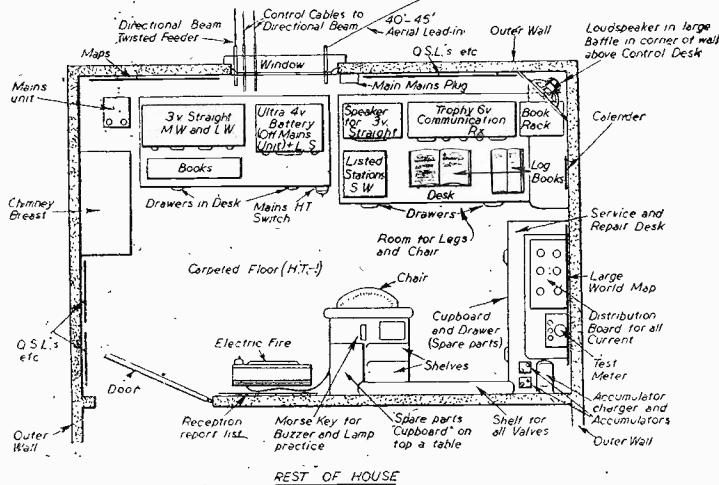 Directional Beam
Twisted Feeder
Control Cables to
Directional Beam
40'-45'
Aerial Lead-in
Outer Wall
Loudspeaker in large
Baffle in corner of wall
above Control Desk
Maps
Window
Q.S.L.'s etc
Main Mains Plug
Mains
unit
3v Straight
MW and LW
Ultra 4v
Battery
(Off Mains
Unit)+L.S
Speaker
for 3v.
Straight
Trophy 6v
Communication
Rx
Book
Rack
Calender
Books
Listed
Stations
S W
Desk
Log
Books
Chimney
Breast
Drawers in Desk
Mains H T
Switch
Drawers
Room for Legs
and Chair
Service and
Repair Desk
Carpeted Floor (H.T.-!)
Chair
Large
World Map
Cupboard
and Drawer
(Spare parts)
Distribution
Board for all
Current
Q.S.L.'s
etc
Electric Fire
Shelves
Test
Meter
Door
Accumulator
charger and
Accumulators
Outer
Wall
Reception
report list
Morse Key for
Buzzer and Lamp
practice
Spare parts
"Cupboard" on
top a table
Shelf for
all Valves
Outer Wall
REST OF HOUSE